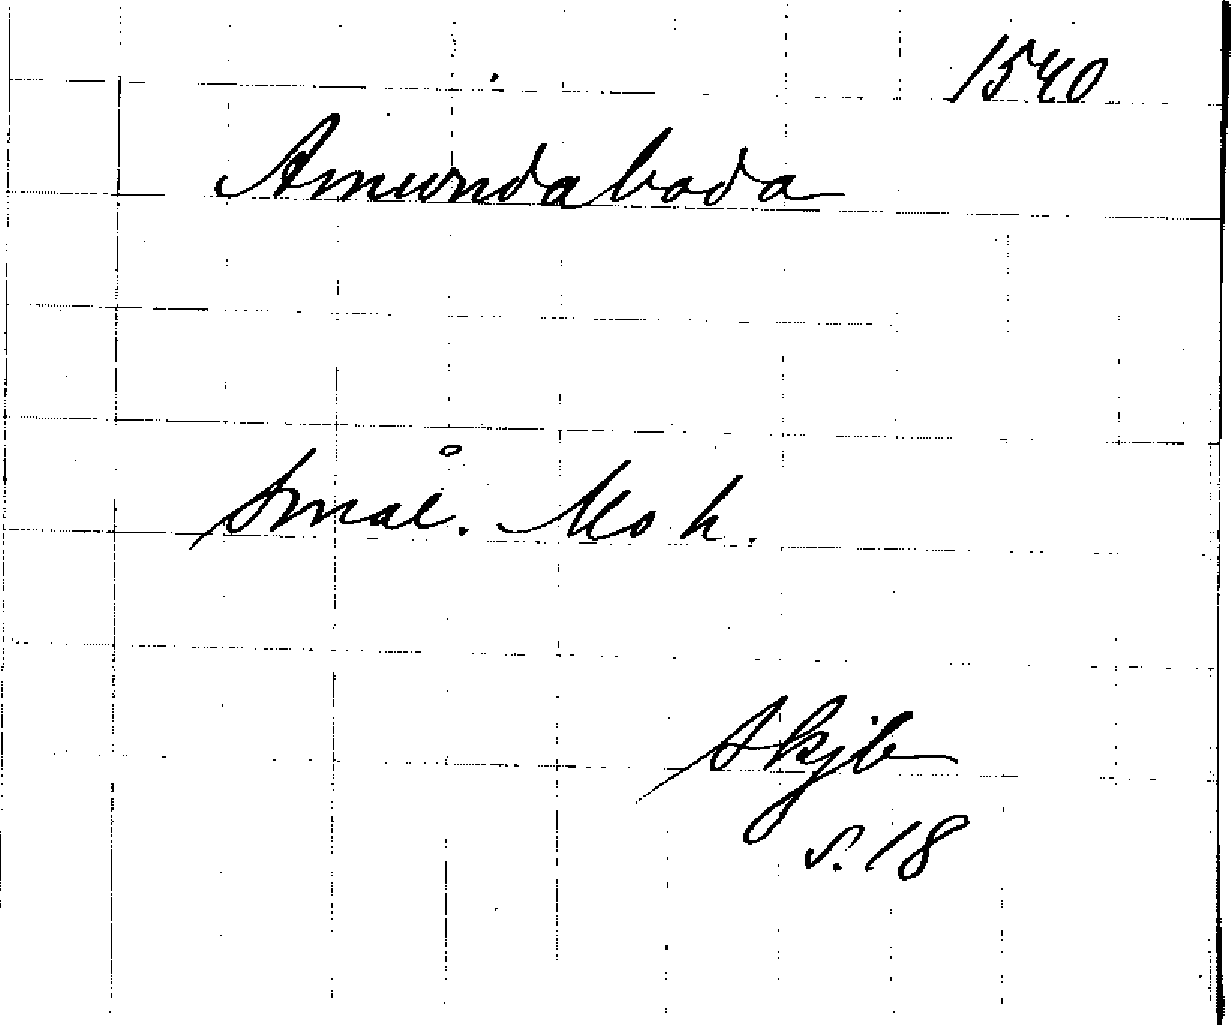 1540
Amundaboda
Smål. Mo h.
Skjb
s. 18